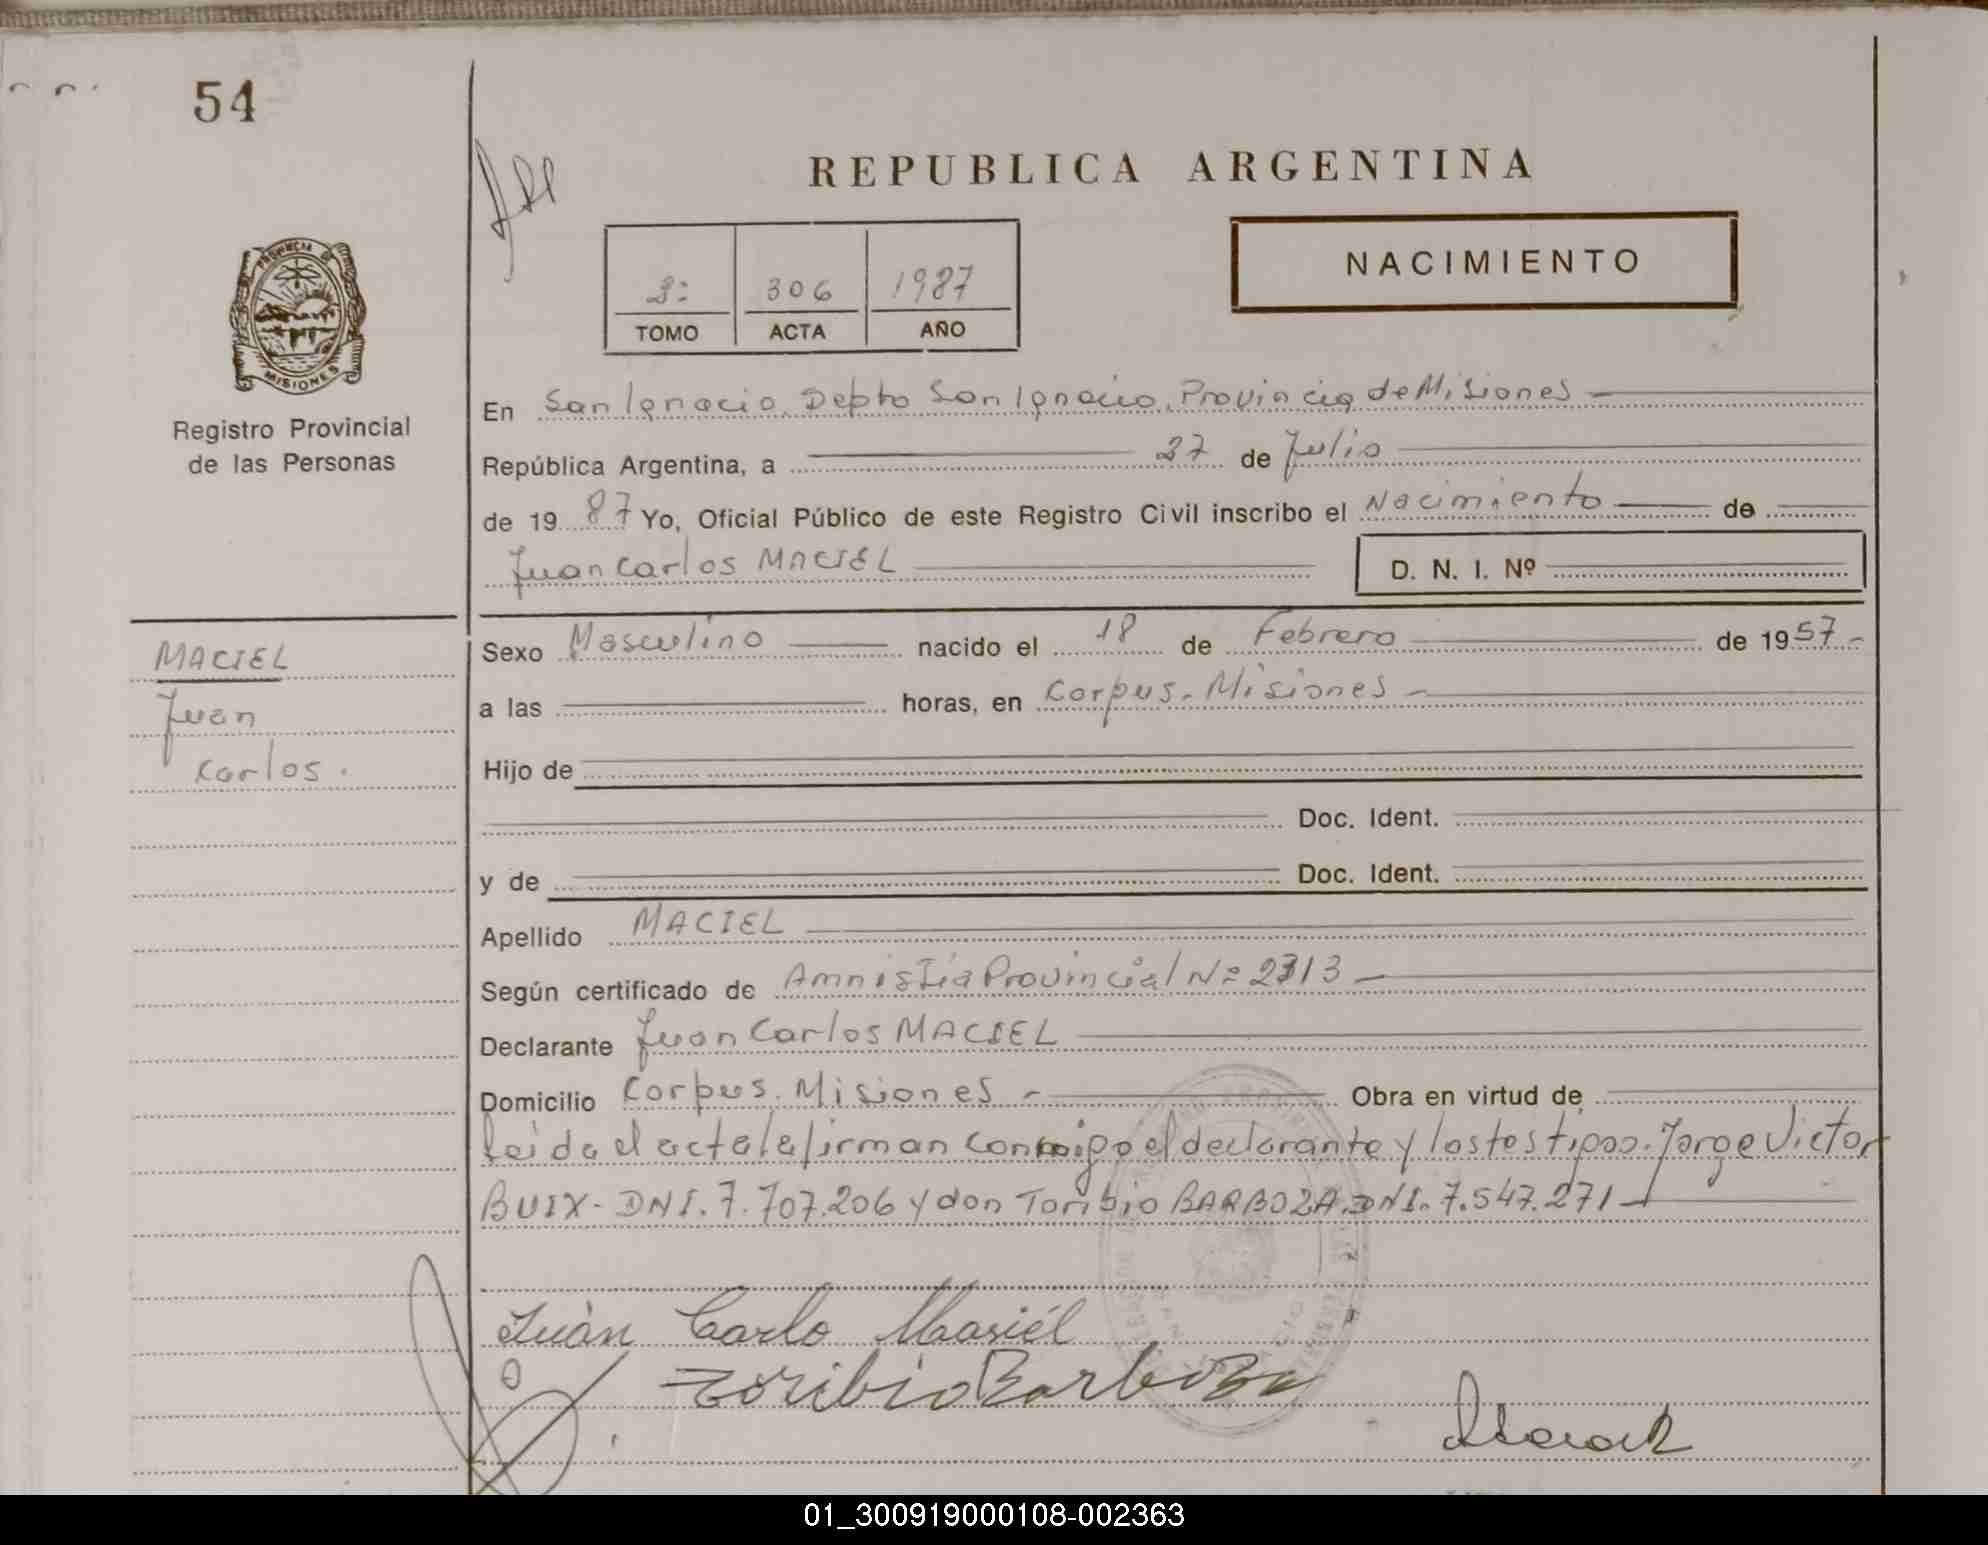 54
REPUBLICA ARGENTINA
NACIMIENTO
3: 306 1987
TOMO ACTA AÑO
PROVINCIA DE
MISIONES
Registro Provincial
de las Personas
En San Ignacio, Depto San Ignacio, Provincia de Misiones
República Argentina, a 27 de Julio
de 19 87 Yo, Oficial Público de este Registro Civil inscribo el Nacimiento de
Juan Carlos MACIEL D. N. I. Nº
MACIEL
Juan
Carlos.
Sexo Masculino nacido el 18 de Febrero de 1957-
a las horas, en Corpus. Misiones -
Hijo de
Doc. Ident.
y de Doc. Ident.
Apellido MACIEL
Según certificado de Amnistia Provincial Nº 2313 -
Declarante Juan Carlos MACIEL
Domicilio Corpus. Misiones - Obra en virtud de
Leida el acta la firman conmigo el declarante y los testigos. Jorge Victor
BUIX - DNI. 7.707.206 y don Toribio BARBOZA. DNI. 7.547.271 -
Juán Carlo Masiél
Toribio Barboza
01_300919000108-002363